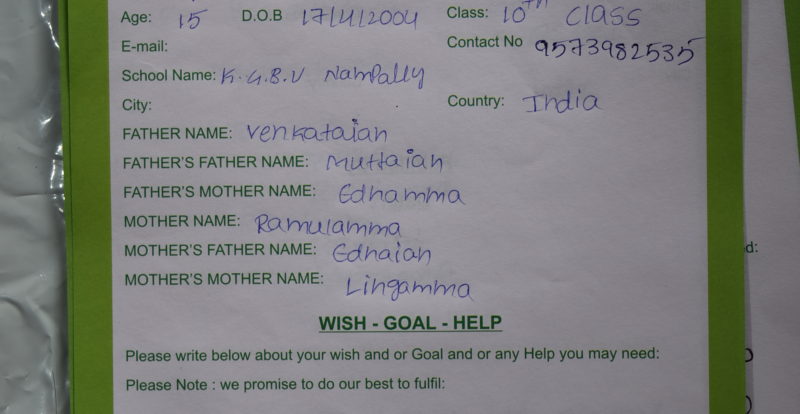 Age: 15 D.O.B 17/4/2004 Class: 10th class
E-mail: Contact No 9573982535
School Name: K.G.B.V Nampally
City: Country: India
FATHER NAME: Venkataiah
FATHER'S FATHER NAME: Muttaiah
FATHER'S MOTHER NAME: Edhamma
MOTHER NAME: Ramulamma
MOTHER'S FATHER NAME: Ednaiah
MOTHER'S MOTHER NAME: Lingamma
WISH - GOAL - HELP
Please write below about your wish and or Goal and or any Help you may need:
Please Note : we promise to do our best to fulfil: